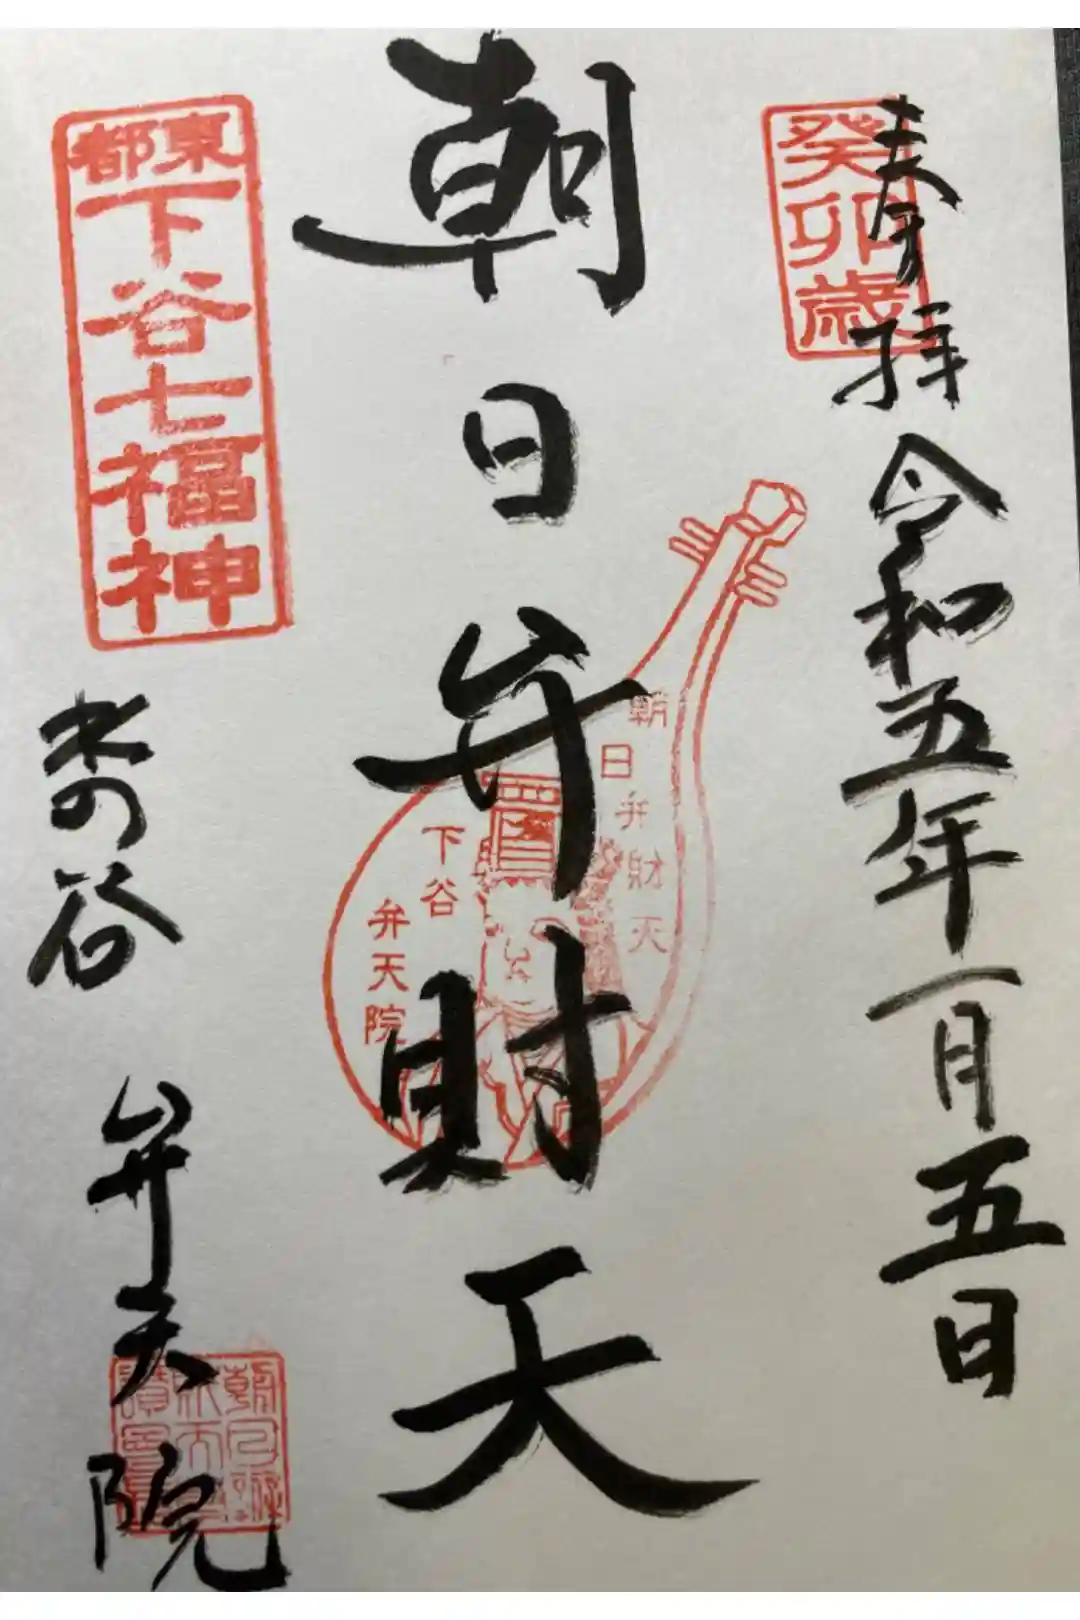 癸卯歳
奉拝 令和五年一月五日
朝日弁財天
朝日弁財天
下谷
弁天院
東都
下谷七福神
水の谷 弁天院